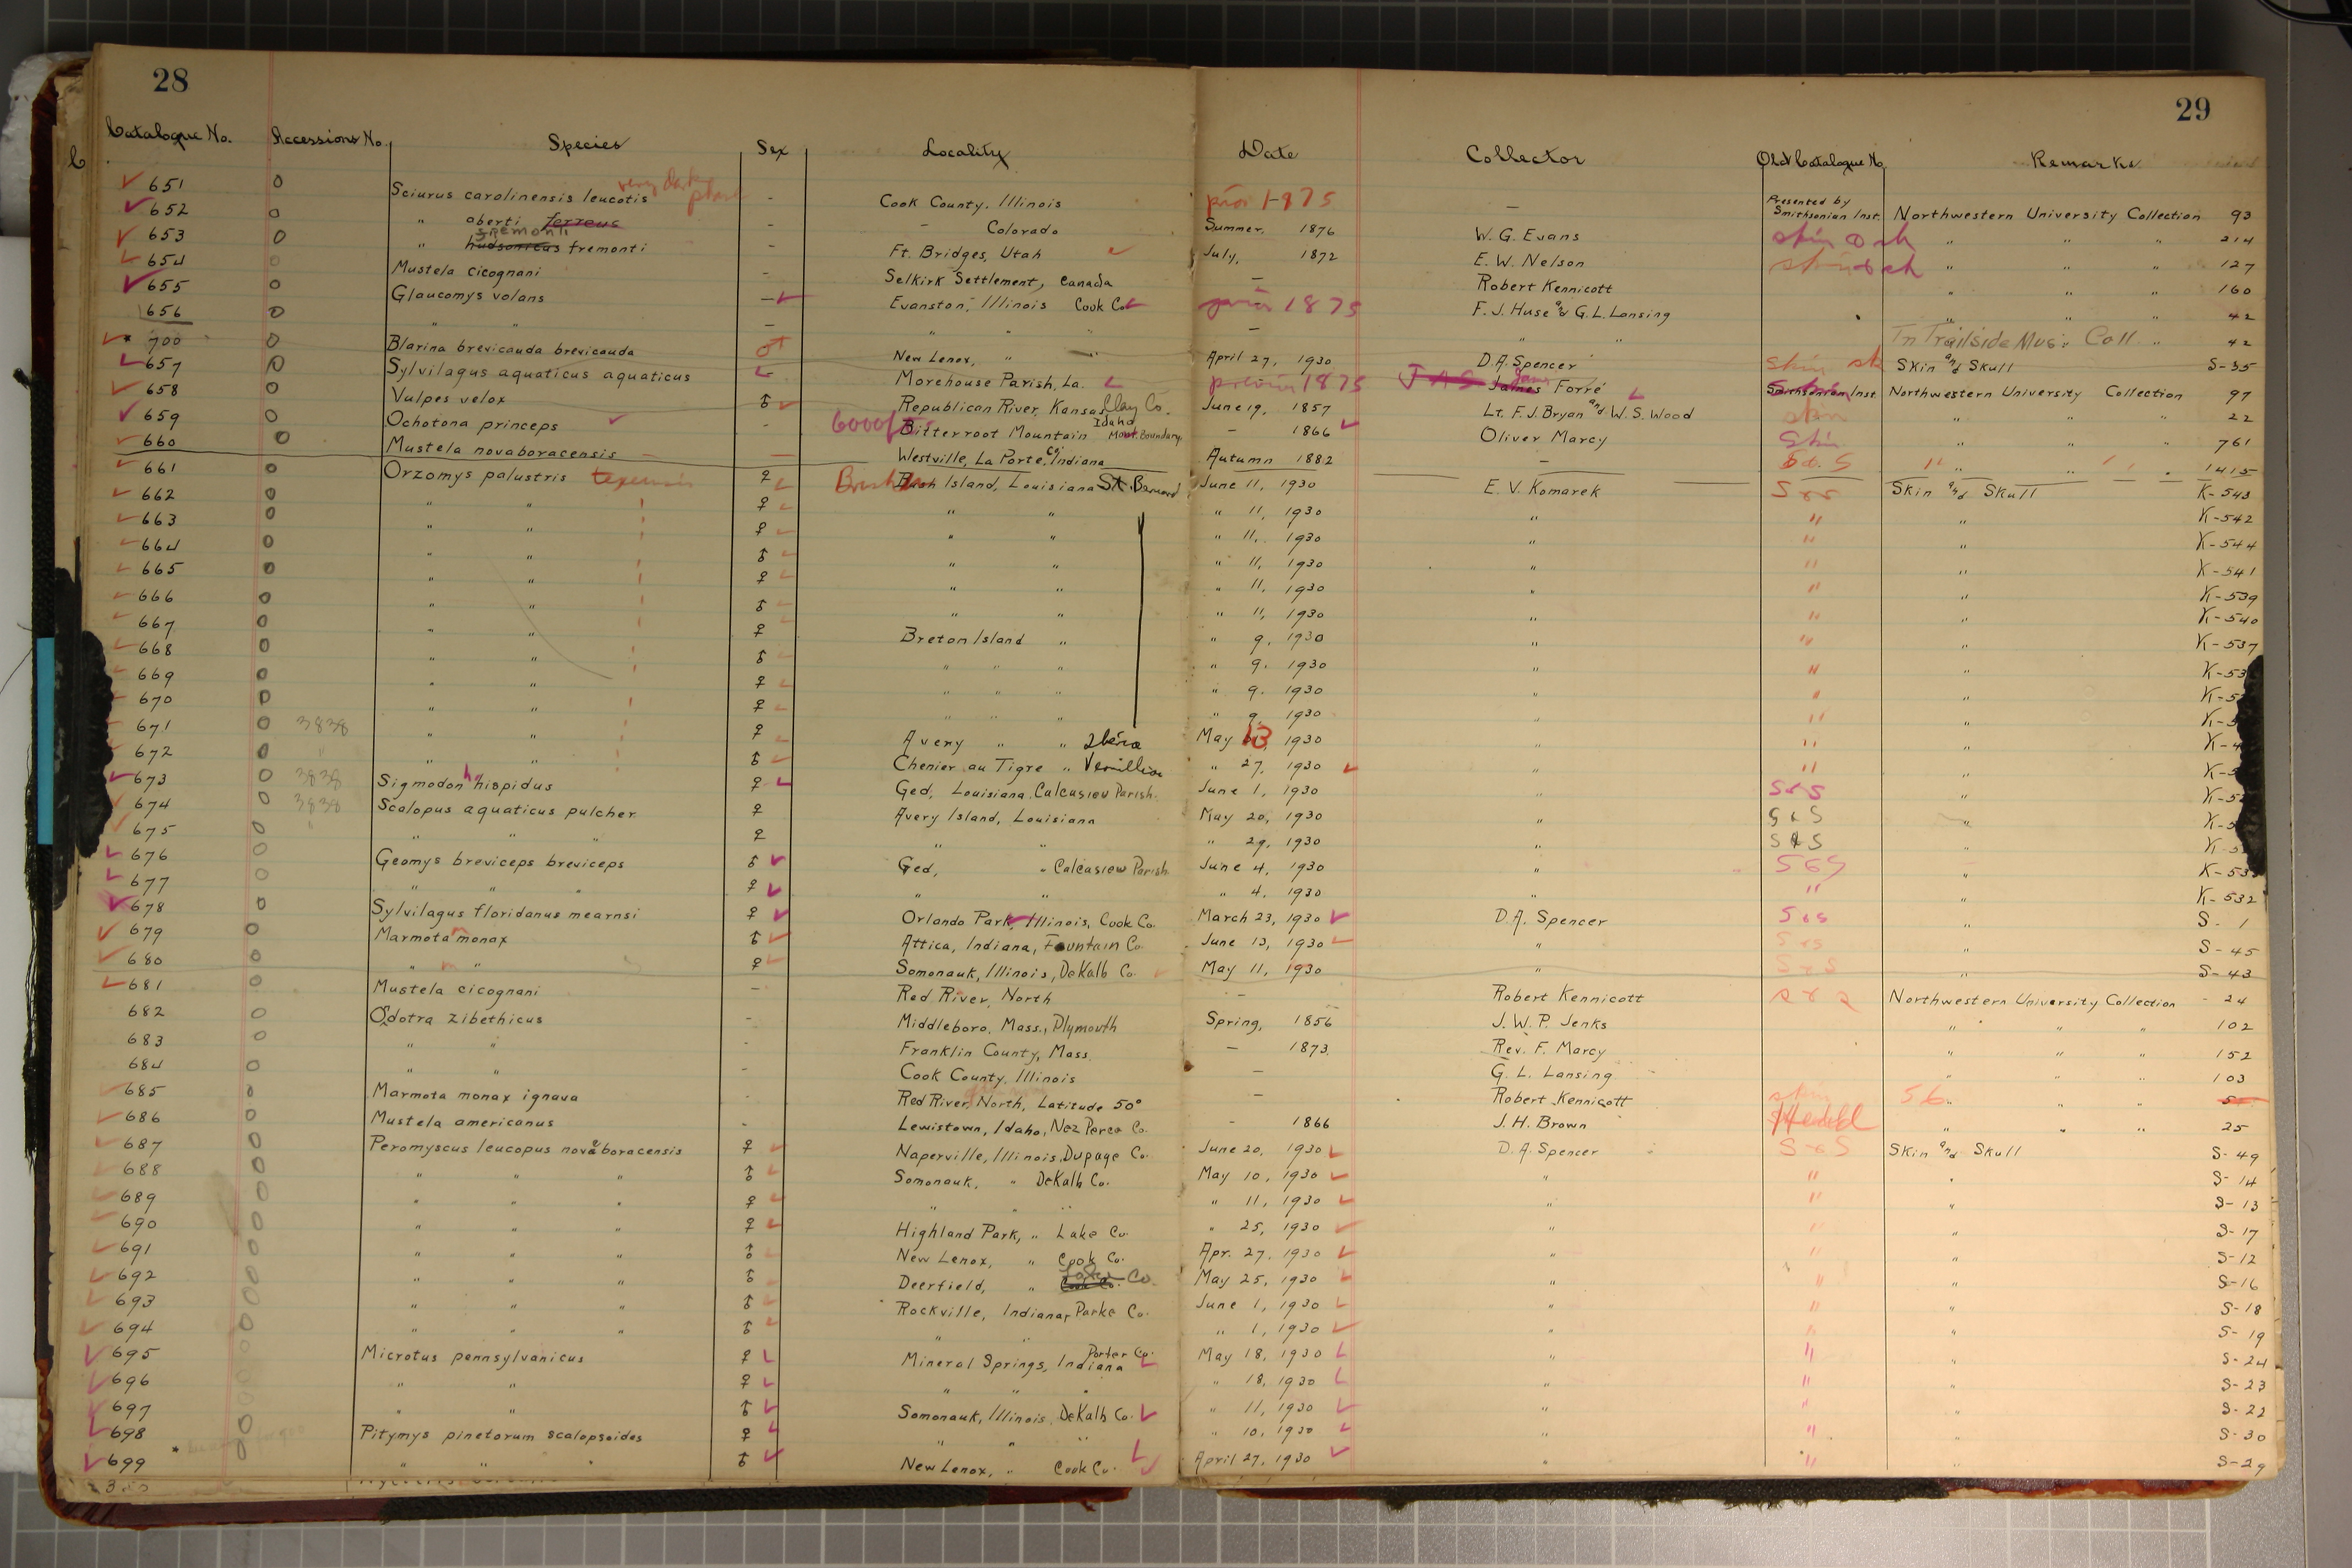 28
29
Catalogue No. Accessions No. Species Sex Locality Date Collector Old Catalogue No. Remarks
651 0 Sciurus carolinensis leucotis very dark phase - Cook County, Illinois prior 1875 — Presented by Smithsonian Inst. Northwestern University Collection 93
652 0 " aberti ferreus - - Colorado Summer, 1876 W. G. Evans skin " " " 214
653 0 " hudsonicus fremonti - Ft. Bridges, Utah July, 1872 E. W. Nelson " " " 127
654 0 Mustela cicognani - Selkirk Settlement, Canada — Robert Kennicott " " " 160
655 0 Glaucomys volans — Evanston, Illinois Cook Co. prior 1875 F. J. Huse and G. L. Lansing " " " 42
656 0 " " — " " — " " In Trailside Mus. Coll. " 42
* 700 0 Blarina brevicauda brevicauda ♂ New Lenox, " April 27, 1930 D. A. Spencer skin sk Skin and Skull S-35
657 0 Sylvilagus aquaticus aquaticus Morehouse Parish, La. previous 1875 JAS James Forré Smithsonian Inst. Northwestern University Collection 97
658 0 Vulpes velox ♂ Republican River, Kansas Clay Co. June 19, 1857 Lt. F. J. Bryan and W. S. Wood skin " " " 22
659 0 Ochotona princeps - 6000ft Bitterroot Mountain Idaho Mont. Boundary. - 1866 Oliver Marcy Skin " " " 761
660 0 Mustela novaboracensis — Westville, La Porte Co. Indiana Autumn 1882 — " " " 1415
661 0 Orzomys palustris texensis ♀ Brush Bush Island, Louisiana St. Bernard June 11, 1930 E. V. Komarek S & S Skin and Skull K-543
662 0 " " " ♀ " " " 11, 1930 " " " K-542
663 0 " " " ♀ " " " 11, 1930 " " " K-544
664 0 " " " ♂ " " " 11, 1930 " " " K-541
665 0 " " " ♀ " " " 11, 1930 " " " K-539
666 0 " " " ♂ " " " 11, 1930 " " " K-540
667 0 " " " ♀ Breton Island " " 9, 1930 " " " K-537
668 0 " " " ♂ " " " " 9, 1930 " " " K-53
669 0 " " " ♀ " " " " 9, 1930 " " " K-5
670 0 " " " ♀ " " " " 9, 1930 " " " K-5
671 0 3838 " " " ♀ Avery " " Iberia May 13, 1930 " " " K-4
672 0 " " " " ♂ Chenier au Tigre " Vermillion " 27, 1930 " " " K-5
673 0 3838 Sigmodon h. hispidus ♀ Ged, Louisiana, Calcasieu Parish. June 1, 1930 " S & S " K-5
674 0 3838 Scalopus aquaticus pulcher ♀ Avery Island, Louisiana May 20, 1930 " S & S " K-5
675 0 " " " " ♀ " " " 29, 1930 " S & S " K-5
676 0 Geomys breviceps breviceps ♂ Ged, " Calcasieu Parish. June 4, 1930 " S & S " K-533
677 0 " " " ♀ " " " 4, 1930 " " " K-532
678 0 Sylvilagus floridanus mearnsi ♀ Orlando Park, Illinois, Cook Co. March 23, 1930 D. A. Spencer S & S " S-1
679 0 Marmota m monax ♂ Attica, Indiana, Fountain Co. June 13, 1930 " S & S " S-45
680 0 " m " ♀ Somonauk, Illinois, DeKalb Co. May 11, 1930 " S & S " S-43
681 0 Mustela cicognani — Red River, North — Robert Kennicott Northwestern University Collection 24
682 0 Odotra zibethicus - Middleboro, Mass., Plymouth Spring, 1856 J. W. P. Jenks " " " 102
683 0 " " - Franklin County, Mass. — 1873. Rev. F. Marcy " " " 152
684 0 " " - Cook County, Illinois — G. L. Lansing " " " 103
685 0 Marmota monax ignava - Red River, North, Latitude 50° — Robert Kennicott skin 56 " " "
686 0 Mustela americanus - Lewistown, Idaho, Nez Perce Co. - 1866 J. H. Brown " " " 25
687 0 Peromyscus leucopus novaboracensis ♀ Naperville, Illinois, Dupage Co. June 20, 1930 D. A. Spencer S & S Skin and Skull S-49
688 0 " " " ♂ Somonauk, " DeKalb Co. May 10, 1930 " " " S-14
689 0 " " " ♀ " " " " 11, 1930 " " " S-13
690 0 " " " ♀ Highland Park, " Lake Co. " 25, 1930 " " " S-17
691 0 " " " ♂ New Lenox, " Cook Co. Apr. 27, 1930 " " " S-12
692 0 " " " ♂ Deerfield, " Cook Co. Lake Co. May 25, 1930 " " " S-16
693 0 " " " ♂ Rockville, Indiana, Parke Co. June 1, 1930 " " " S-18
694 0 " " " ♂ " " " 1, 1930 " " " S-19
695 0 Microtus pennsylvanicus ♀ Mineral Springs, Indiana Porter Co. May 18, 1930 " " " S-24
696 0 " " ♀ " " " " 18, 1930 " " " S-23
697 0 " " ♂ Somonauk, Illinois, DeKalb Co. " 11, 1930 " " " S-22
698 0 Pitymys pinetorum scalopsoides ♀ " " " " 10, 1930 " " " S-30
* 699 0 " " " ♂ New Lenox, " Cook Co. April 27, 1930 " " " S-29